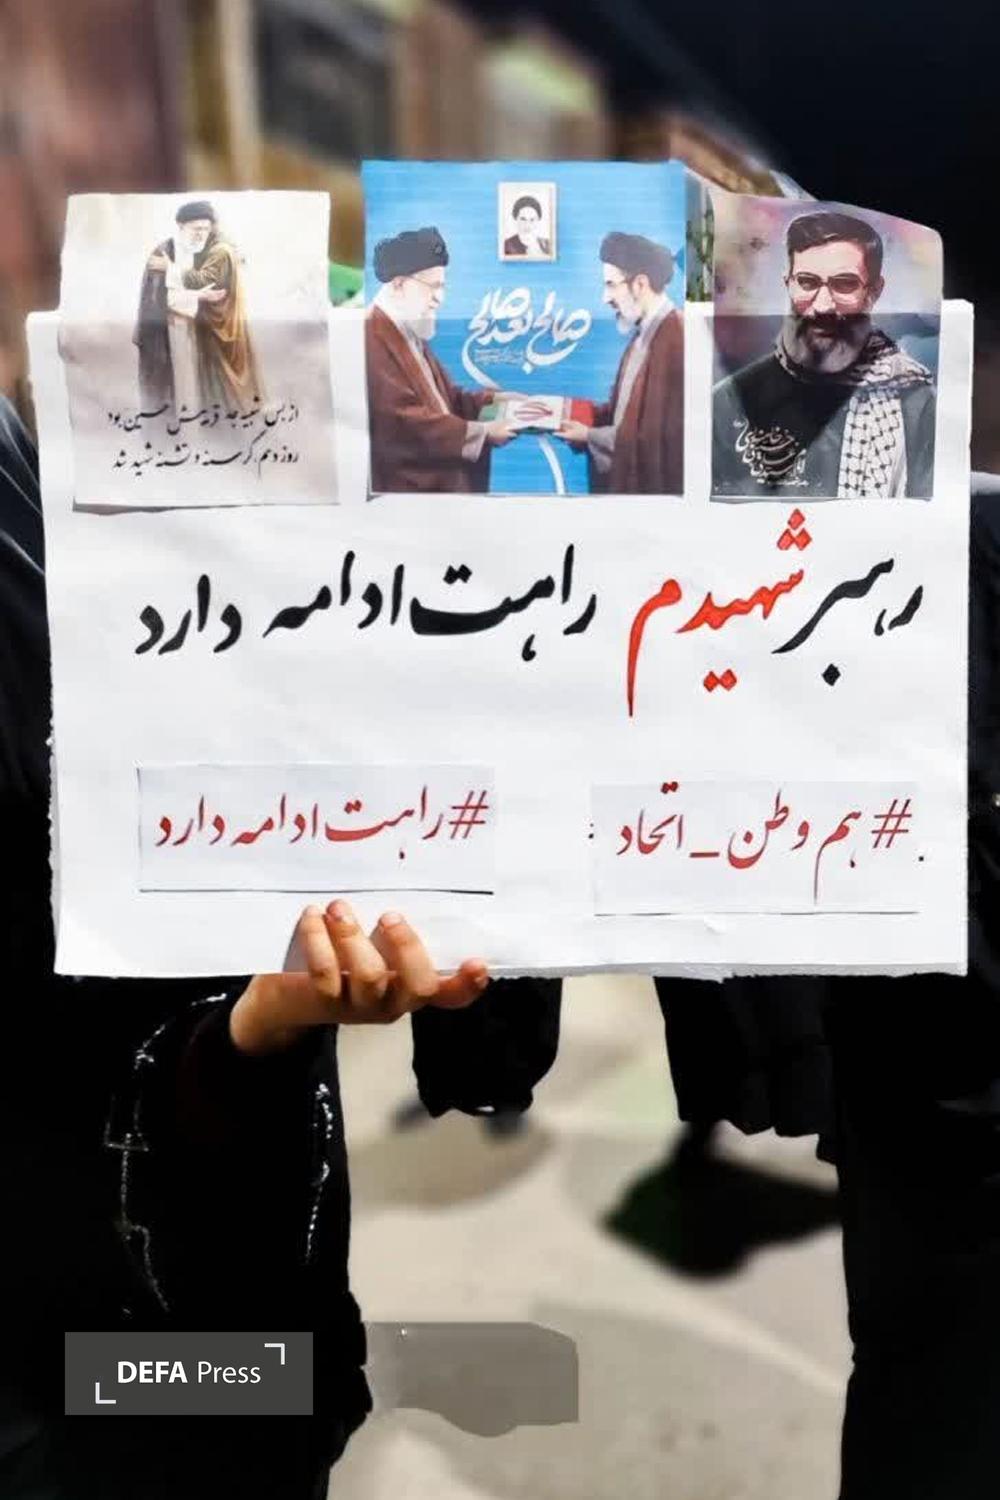 صالح بعد صالح
از بس شبیه جد غریبش حسین بود
روز دهم، گرسنه و تشنه شهید شد
رهبر شهیدم راهت ادامه دارد
#هم وطن_اتحاد
#راهت ادامه دارد
DEFA Press